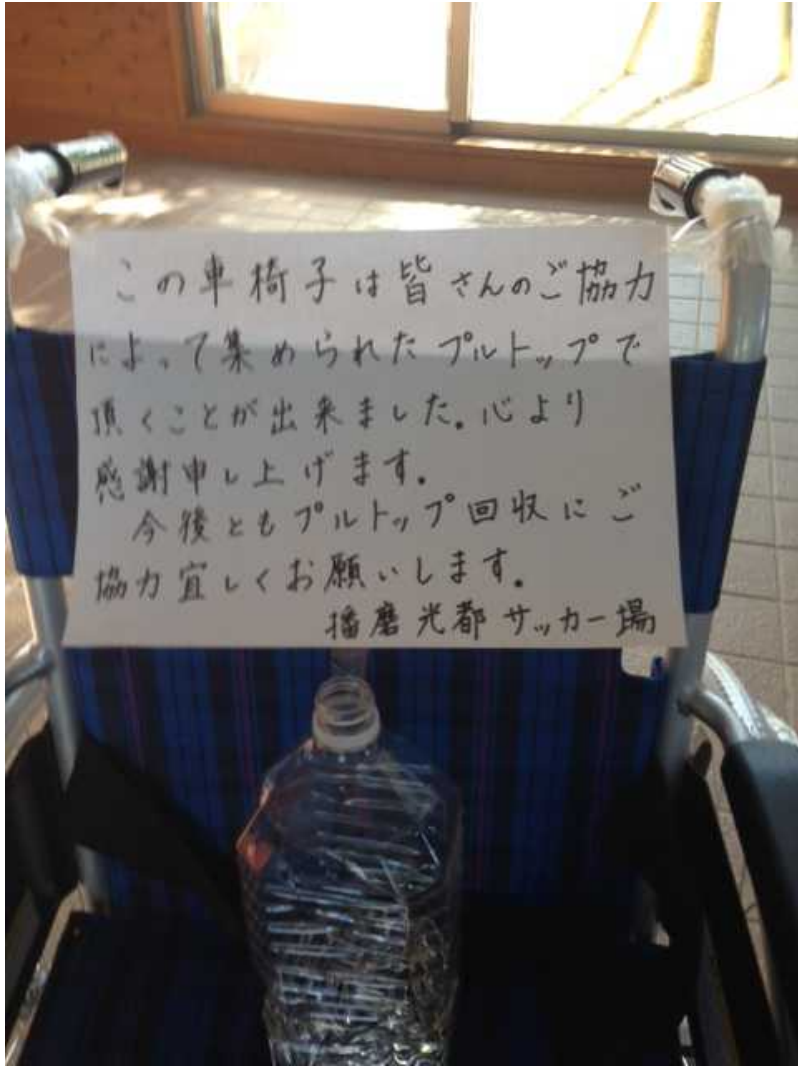 この車椅子は皆さんのご協力
によって集められたプルトップで
頂くことが出来ました。心より
感謝申し上げます。
今後ともプルトップ回収にご
協力宜しくお願いします。
播磨光都サッカー場